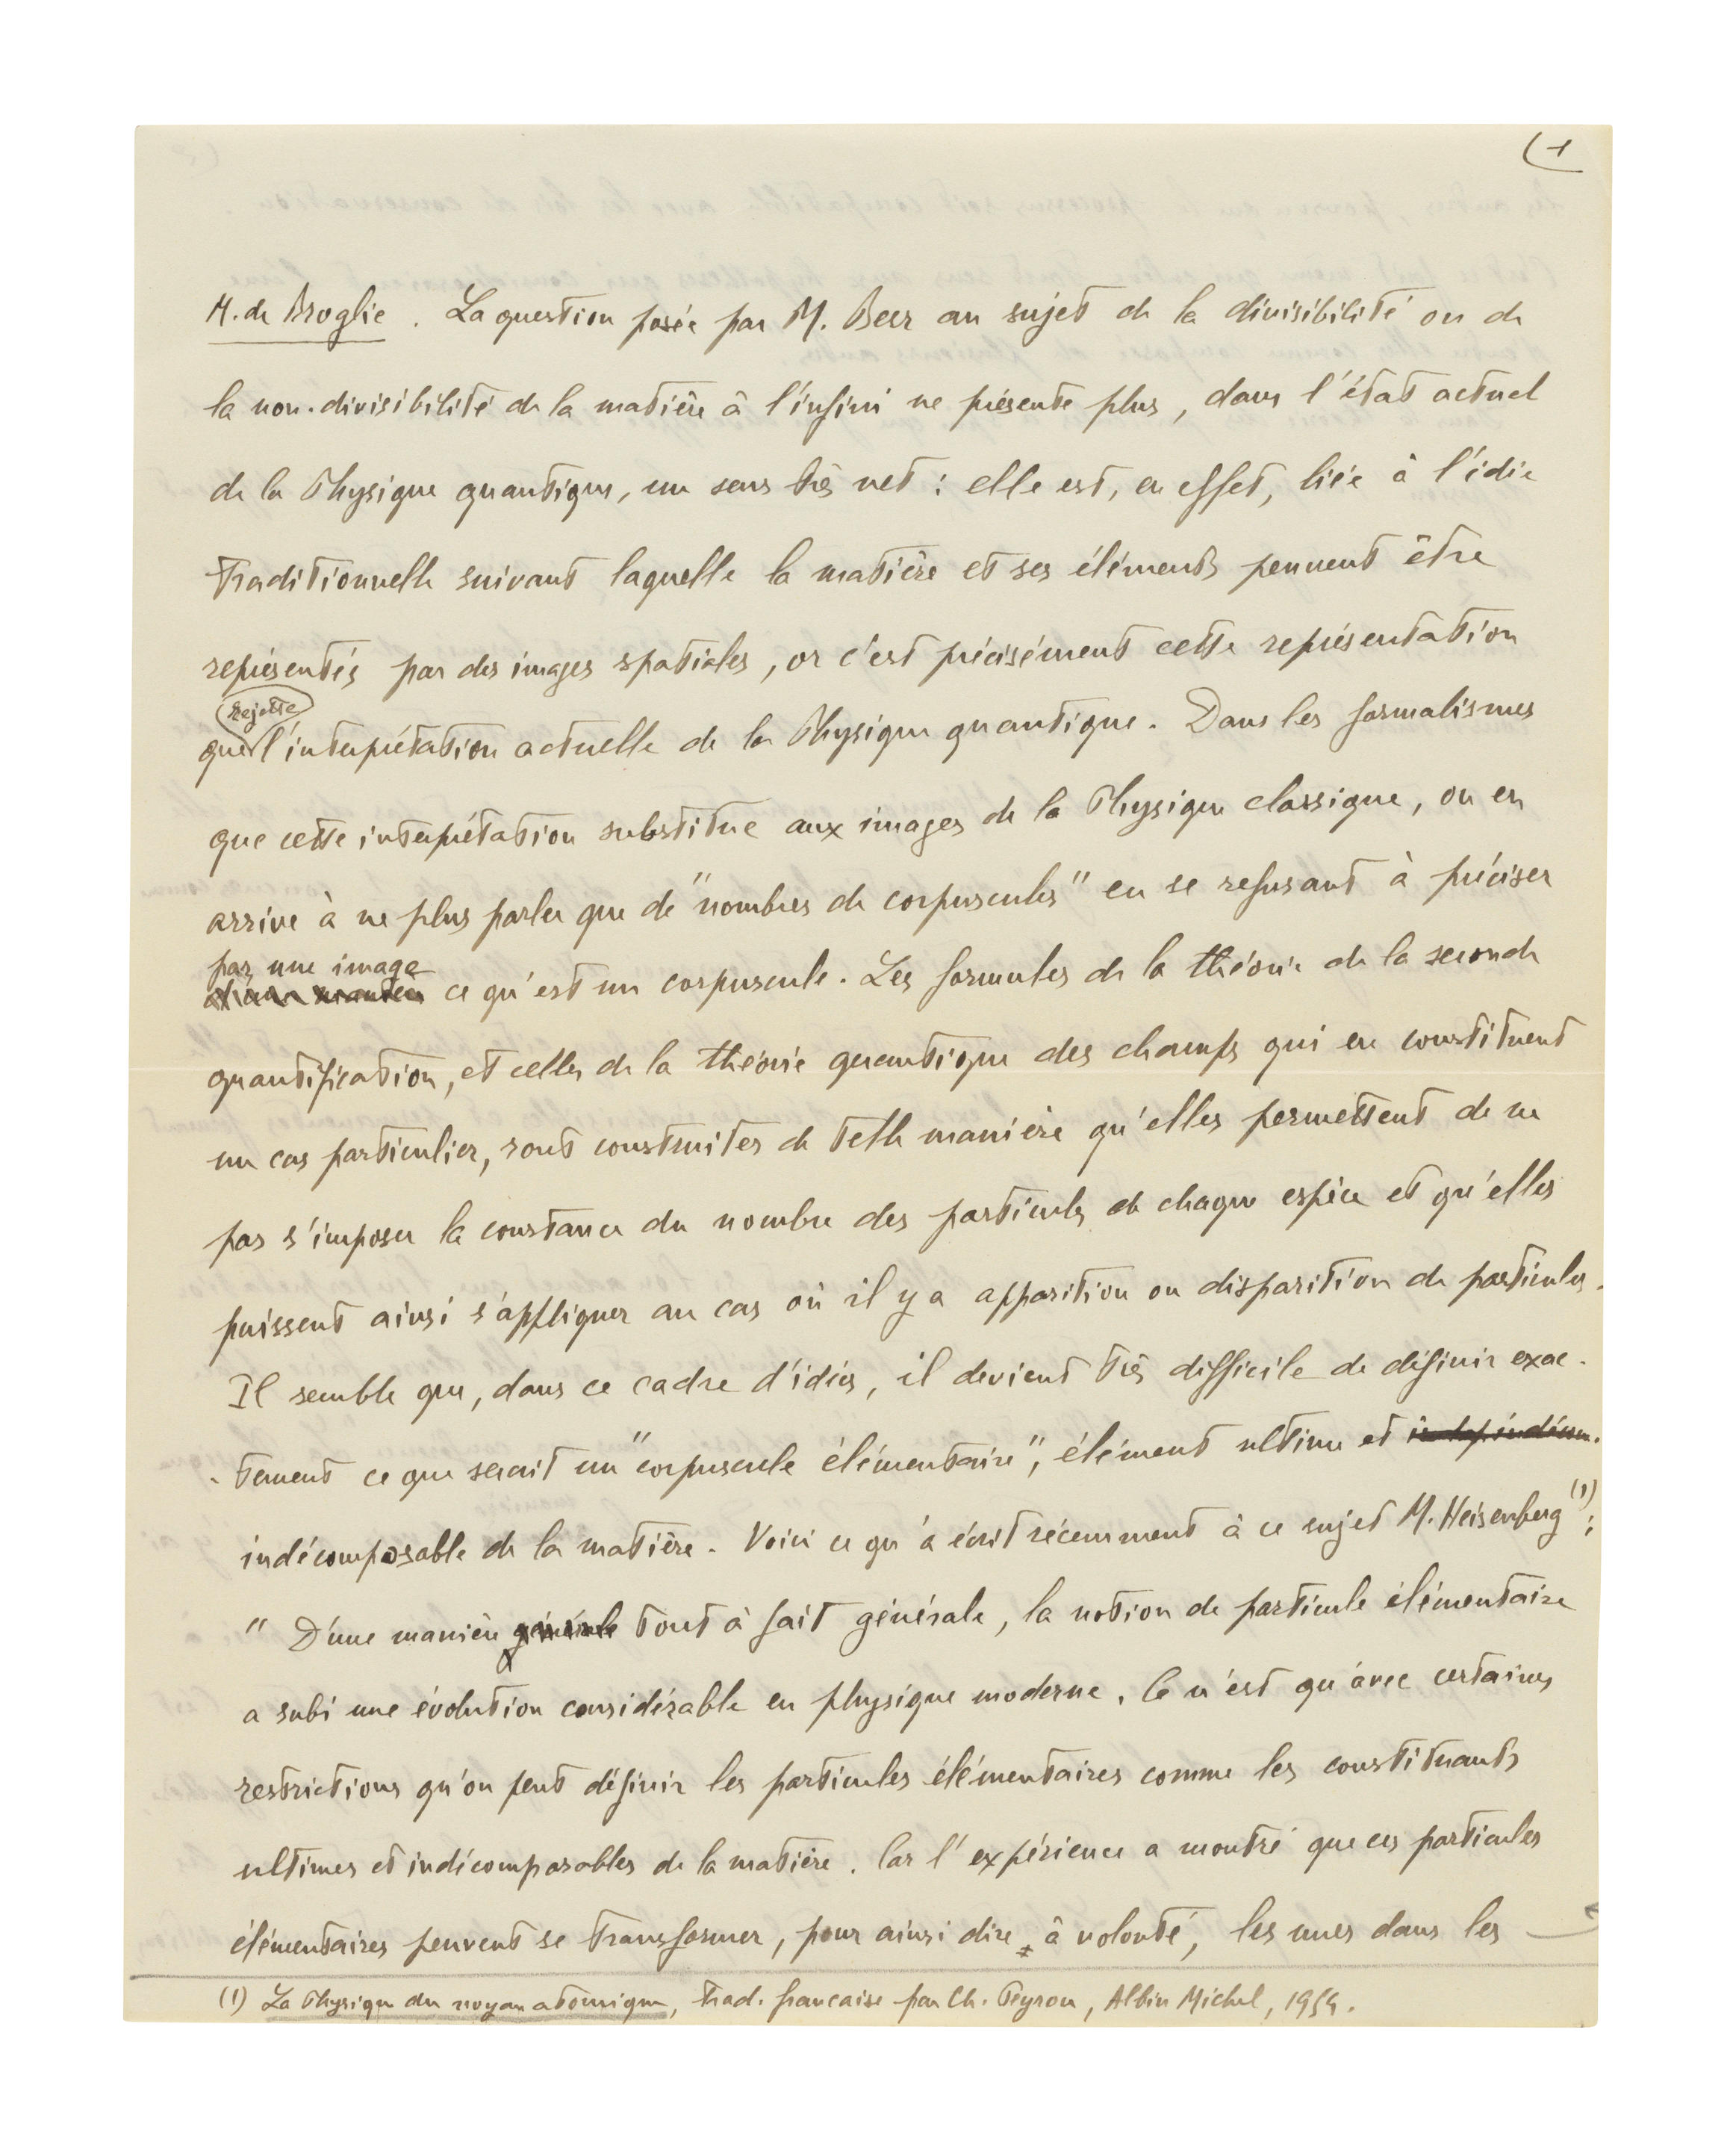 (1
M. de Broglie. La question posée par M. Beer au sujet de la divisibilité ou de
la non-divisibilité de la matière à l'infini ne présente plus, dans l'état actuel
de la Physique quantique, un sens très net : elle est, en effet, liée à l'idée
traditionnelle suivant laquelle la matière et ses éléments peuvent être
représentés par des images spatiales, or c'est précisément cette représentation
rejette
que l'interprétation actuelle de la Physique quantique. Dans les formalismes
que cette interprétation substitue aux images de la Physique classique, on en
arrive à ne plus parler que de "nombres de corpuscules" en se refusant à préciser
par une image
ce qu'est un corpuscule. Les formules de la théorie de la seconde
quantification, et celles de la théorie quantique des champs qui en constituent
un cas particulier, sont construites de telle manière qu'elles permettent de ne
pas s'imposer la constance du nombre des particules de chaque espèce et qu'elles
puissent ainsi s'appliquer au cas où il y a apparition ou disparition de particules.
Il semble que, dans ce cadre d'idées, il devient très difficile de définir exac-
-tement ce que serait un "corpuscule élémentaire", élément ultime et
indécomposable de la matière. Voici ce qu'a écrit récemment à ce sujet M. Heisenberg (1) :
" D'une manière générale tout à fait générale, la notion de particule élémentaire
a subi une évolution considérable en physique moderne. Ce n'est qu'avec certaines
restrictions qu'on peut définir les particules élémentaires comme les constituants
ultimes et indécomposables de la matière. Car l'expérience a montré que ces particules
élémentaires peuvent se transformer, pour ainsi dire à volonté, les unes dans les
(1) La Physique du noyau atomique, trad. francaise par Ch. Peyrou, Albin Michel, 1954.